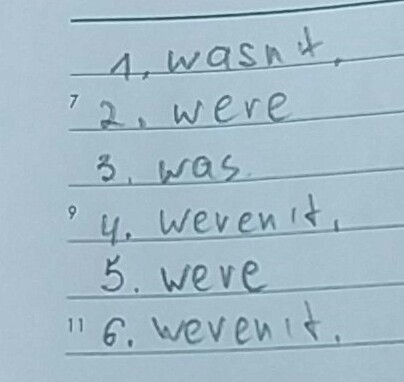 1. wasn't.
7 2. were
3. was.
9 4. weren't.
5. were
11 6. weren't.